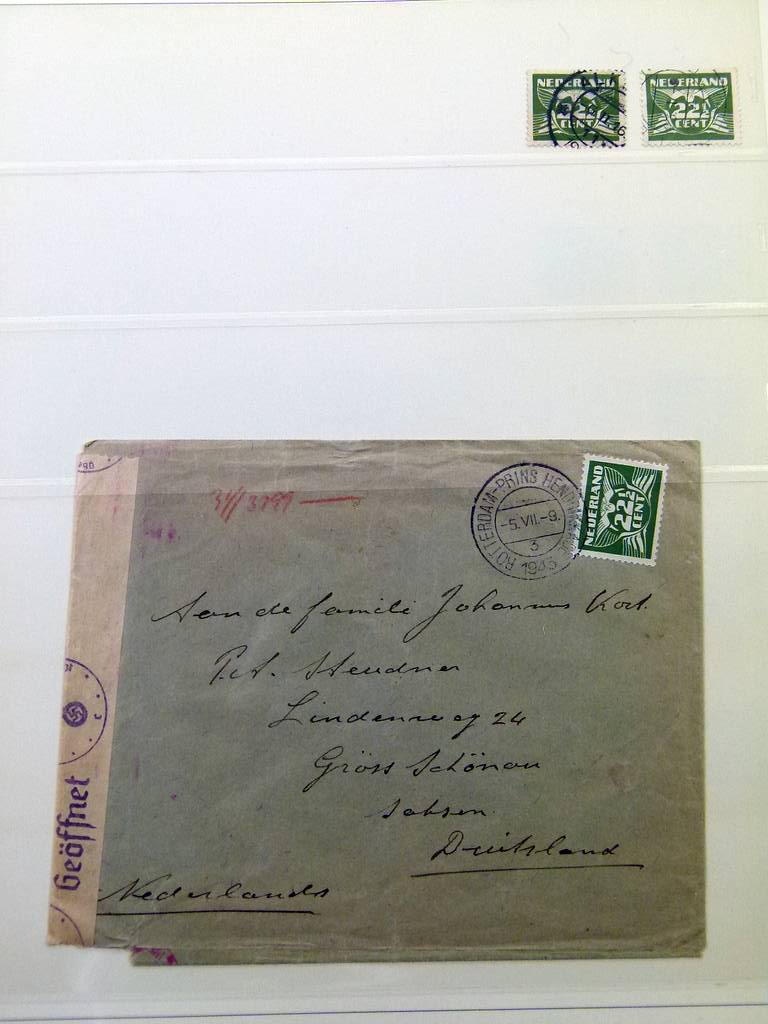 NEDERLAND
22½
CENT
NEDERLAND
22½
CENT
34//3797
ROTTERDAM-PRINS
-5.VII.-9.
3
1943
NEDERLAND
22½
CENT
Aan de famili Johannus Kort.
Steudner
Lindenweg 24
Gröss Schönau
Saksen
Duitsland
Nederlands
Geöffnet
c